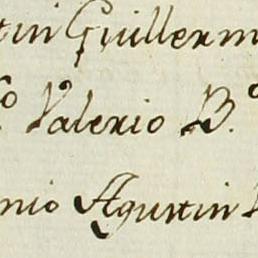 tin Guillerm
º Valerio B.º
nio Agustin